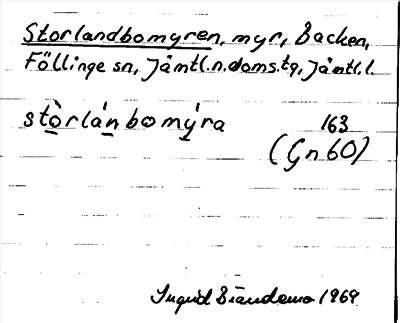 Storlandbomyren, myr, Backen,
Föllinge sn, Jämtl.n.doms.tg, Jämtl.l.
stòrlánbomýra 163
(Gn 60)
Ingrid 1969